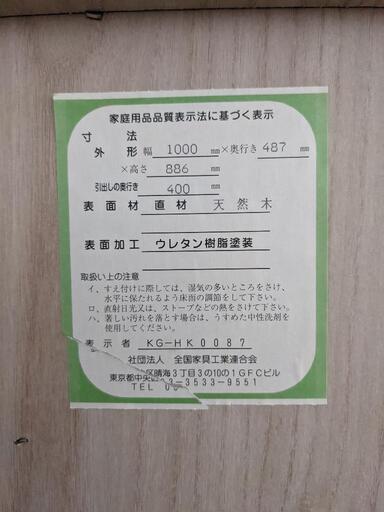 家庭用品品質表示法に基づく表示
寸法
外形 幅 1000 ㎜ ×奥行き 487 ㎜
×高さ 886 ㎜
引出しの奥行き 400 ㎜
表面材 直材 天然木
表面加工 ウレタン樹脂塗装
取扱い上の注意
イ、すえ付けに際しては、湿気の多いところをさけ、
水平に保たれるよう床面の調節をして下さい。
ロ、直射日光又は、ストーブなどの熱をさけて下さい。
ハ、著しい汚れを落とす場合は、うすめた中性洗剤を
使用してください。
表示者 KG-HK0087
社団法人 全国家具工業連合会
東京都中央区晴海3丁目3の10の1GFCビル
TEL 03-3533-9551